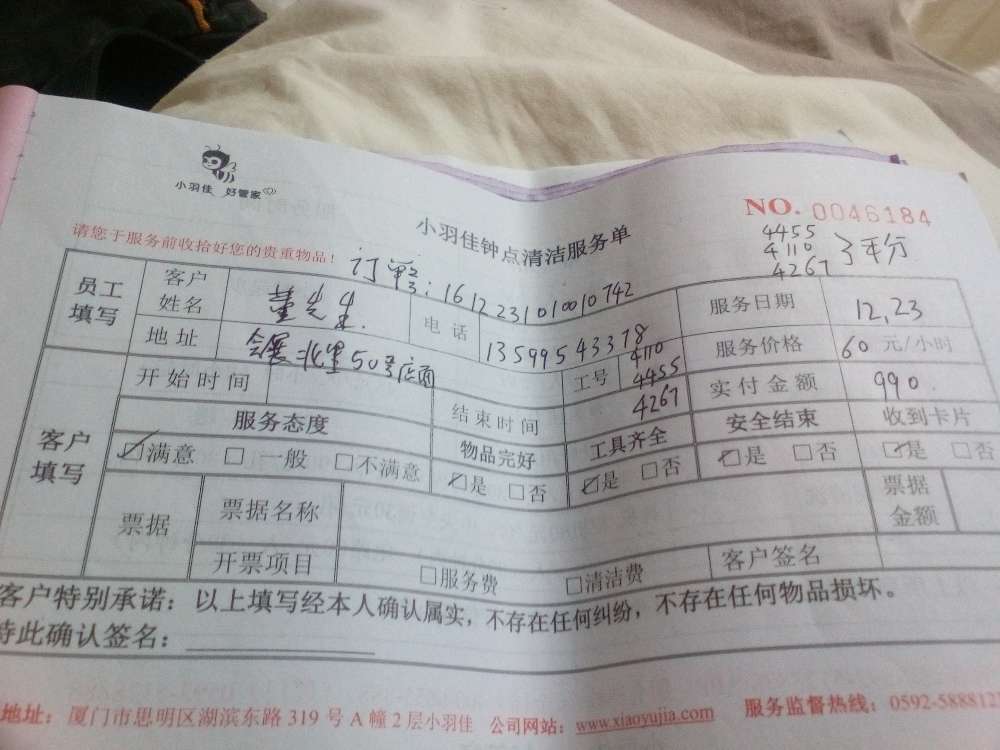 小羽佳 好管家
NO. 0046184
小羽佳钟点清洁服务单
请您于服务前收拾好您的贵重物品！
4455
4110
4267
3平分
订单:1612231010010742
员工填写
客户姓名 董先生
电话 13599543378
服务日期 12,23
地址 会展北里50号店面
工号 4110
4455
4267
服务价格 60 元/小时
客户填写
开始时间
结束时间
实付金额 990.
服务态度
物品完好
工具齐全
安全结束
收到卡片
☑满意 □一般 □不满意
☑是 □否
☑是 □否
☑是 □否
☑是 □否
票据
票据名称
票据金额
开票项目
□服务费 □清洁费
客户签名
客户特别承诺：以上填写经本人确认属实，不存在任何纠纷，不存在任何物品损坏。
特此确认签名：
地址：厦门市思明区湖滨东路 319 号 A 幢 2 层小羽佳 公司网站：www.xiaoyujia.com 服务监督热线：0592-5888127